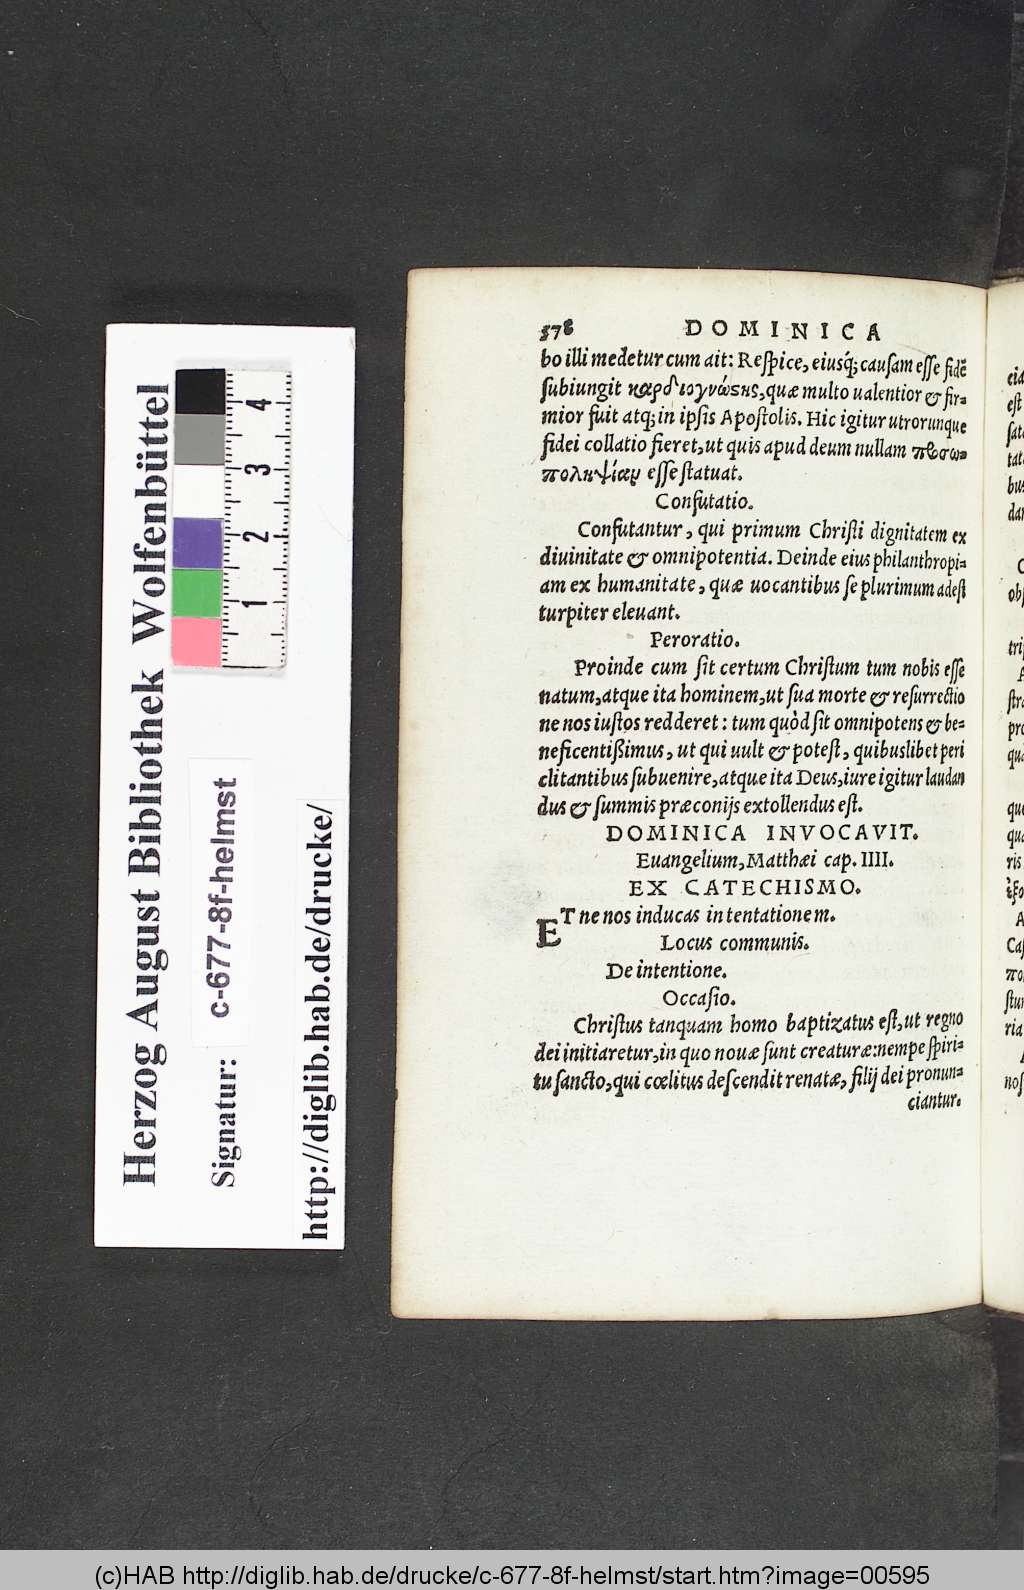 578 DOMINICA
bo illi medetur cum ait: Respice, eiusq́; causam esse fidē
subiungit καρδιογνώσης, quæ multo ualentior & fir-
mior fuit atq; in ipsis Apostolis. Hic igitur utrorunque
fidei collatio fieret, ut quis apud deum nullam προσω-
ποληψίαν esse statuat.
Confutatio.
Confutantur, qui primum Christi dignitatem ex
diuinitate & omnipotentia. Deinde eius philanthropi-
am ex humanitate, quæ uocantibus se plurimum adest
turpiter eleuant.
Peroratio.
Proinde cum sit certum Christum tum nobis esse
natum, atque ita hominem, ut sua morte & resurrectio
ne nos iustos redderet: tum quòd sit omnipotens & be-
neficentißimus, ut qui uult & potest, quibuslibet peri
clitantibus subuenire, atque ita Deus, iure igitur laudan
dus & summis præconijs extollendus est.
DOMINICA INVOCAVIT.
Euangelium, Matthæi cap. IIII.
EX CATECHISMO.
ET ne nos inducas in tentationem.
Locus communis.
De intentione.
Occasio.
Christus tanquam homo baptizatus est, ut regno
dei initiaretur, in quo nouæ sunt creaturæ: nempe spiri-
tu sancto, qui cœlitus descendit renatæ, filij dei pronun-
ciantur.
Herzog August Bibliothek Wolfenbüttel
Signatur: c-677-8f-helmst
http://diglib.hab.de/drucke/
1 2 3 4
(c)HAB http://diglib.hab.de/drucke/c-677-8f-helmst/start.htm?image=00595